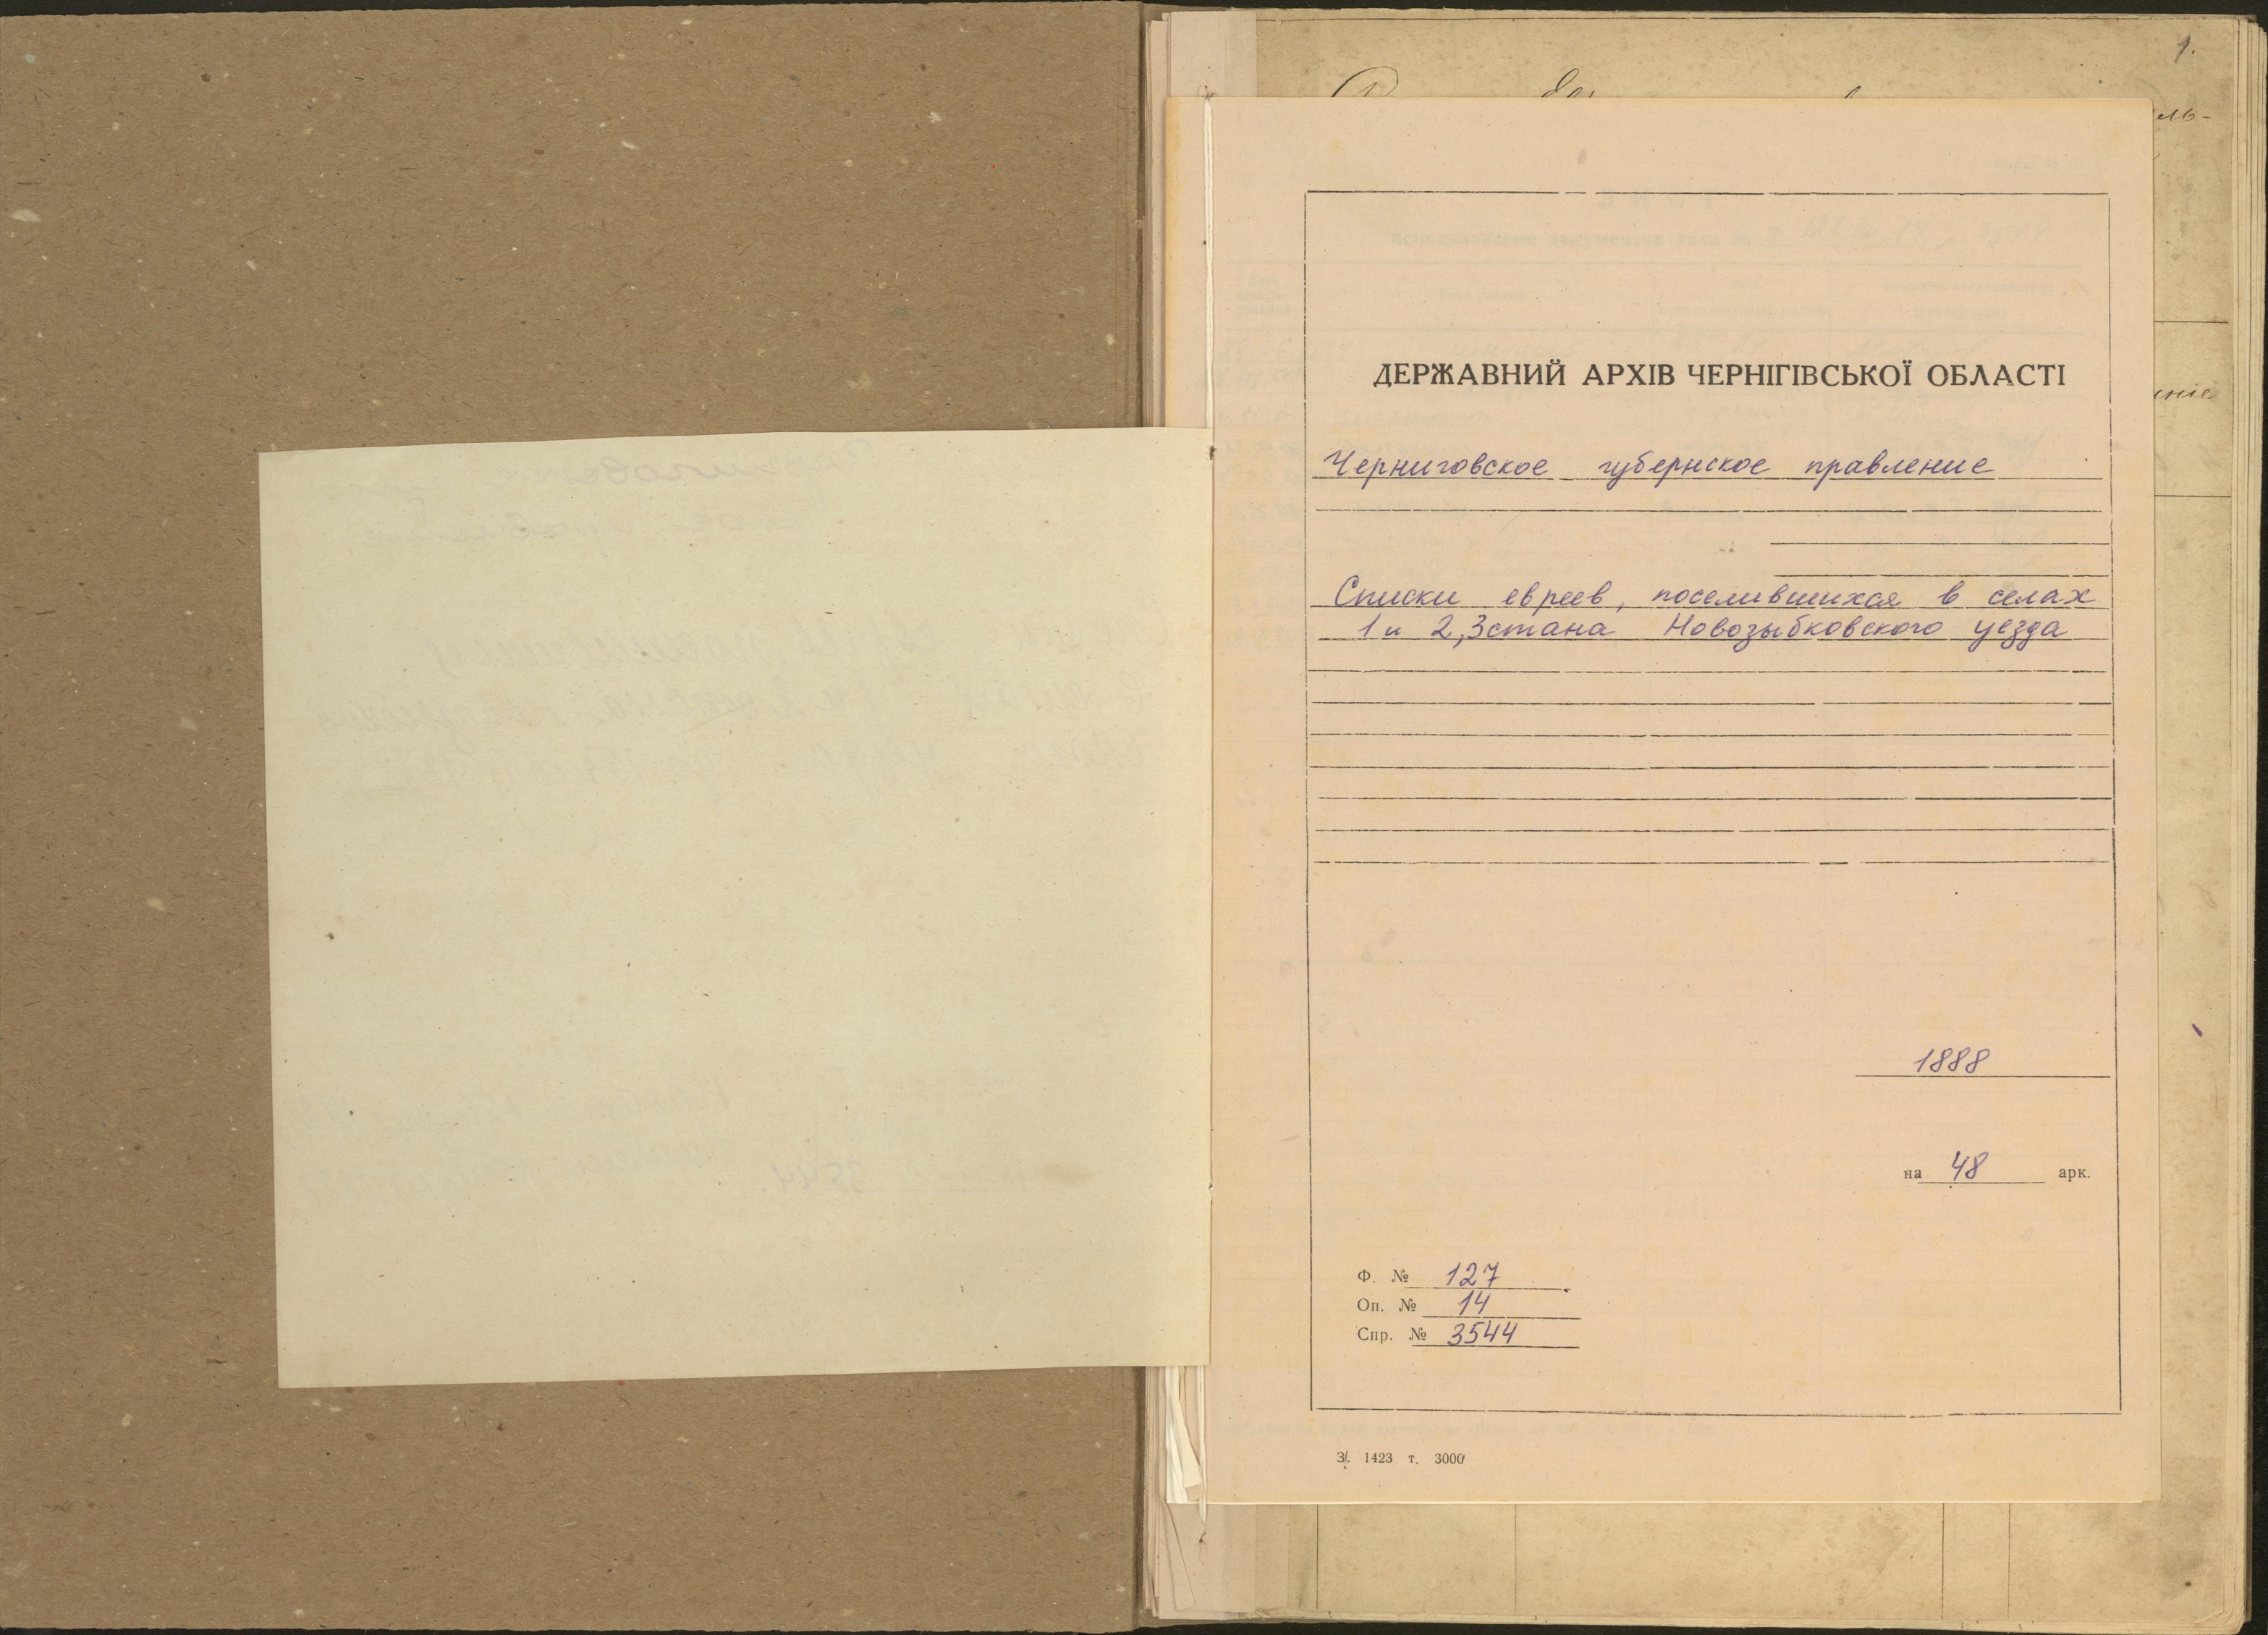 1.
ль-
ніе
ДЕРЖАВНИЙ АРХІВ ЧЕРНІГІВСЬКОЇ ОБЛАСТІ
Черниговское губернское правление
Списки евреев, поселившихся в селах
1 и 2,3 стана Новозыбковского уезда
1888
на 48 арк.
Ф. № 127
Оп. № 14
Спр. № 3544
З. 1423 т. 3000